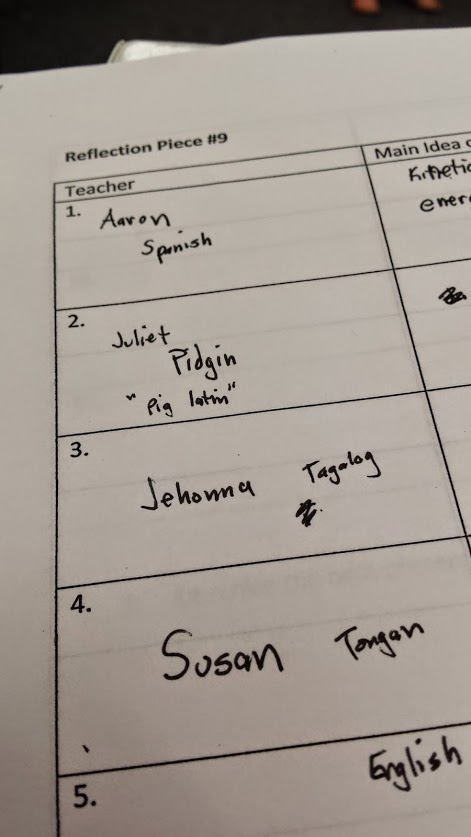 Reflection Piece #9
Teacher
Main Idea
1.
Aaron
Spanish
Kinetic
2.
Juliet
Pidgin
"Pig latin"
3.
Jehonna Tagalog
4.
Susan Tongan
5.
English